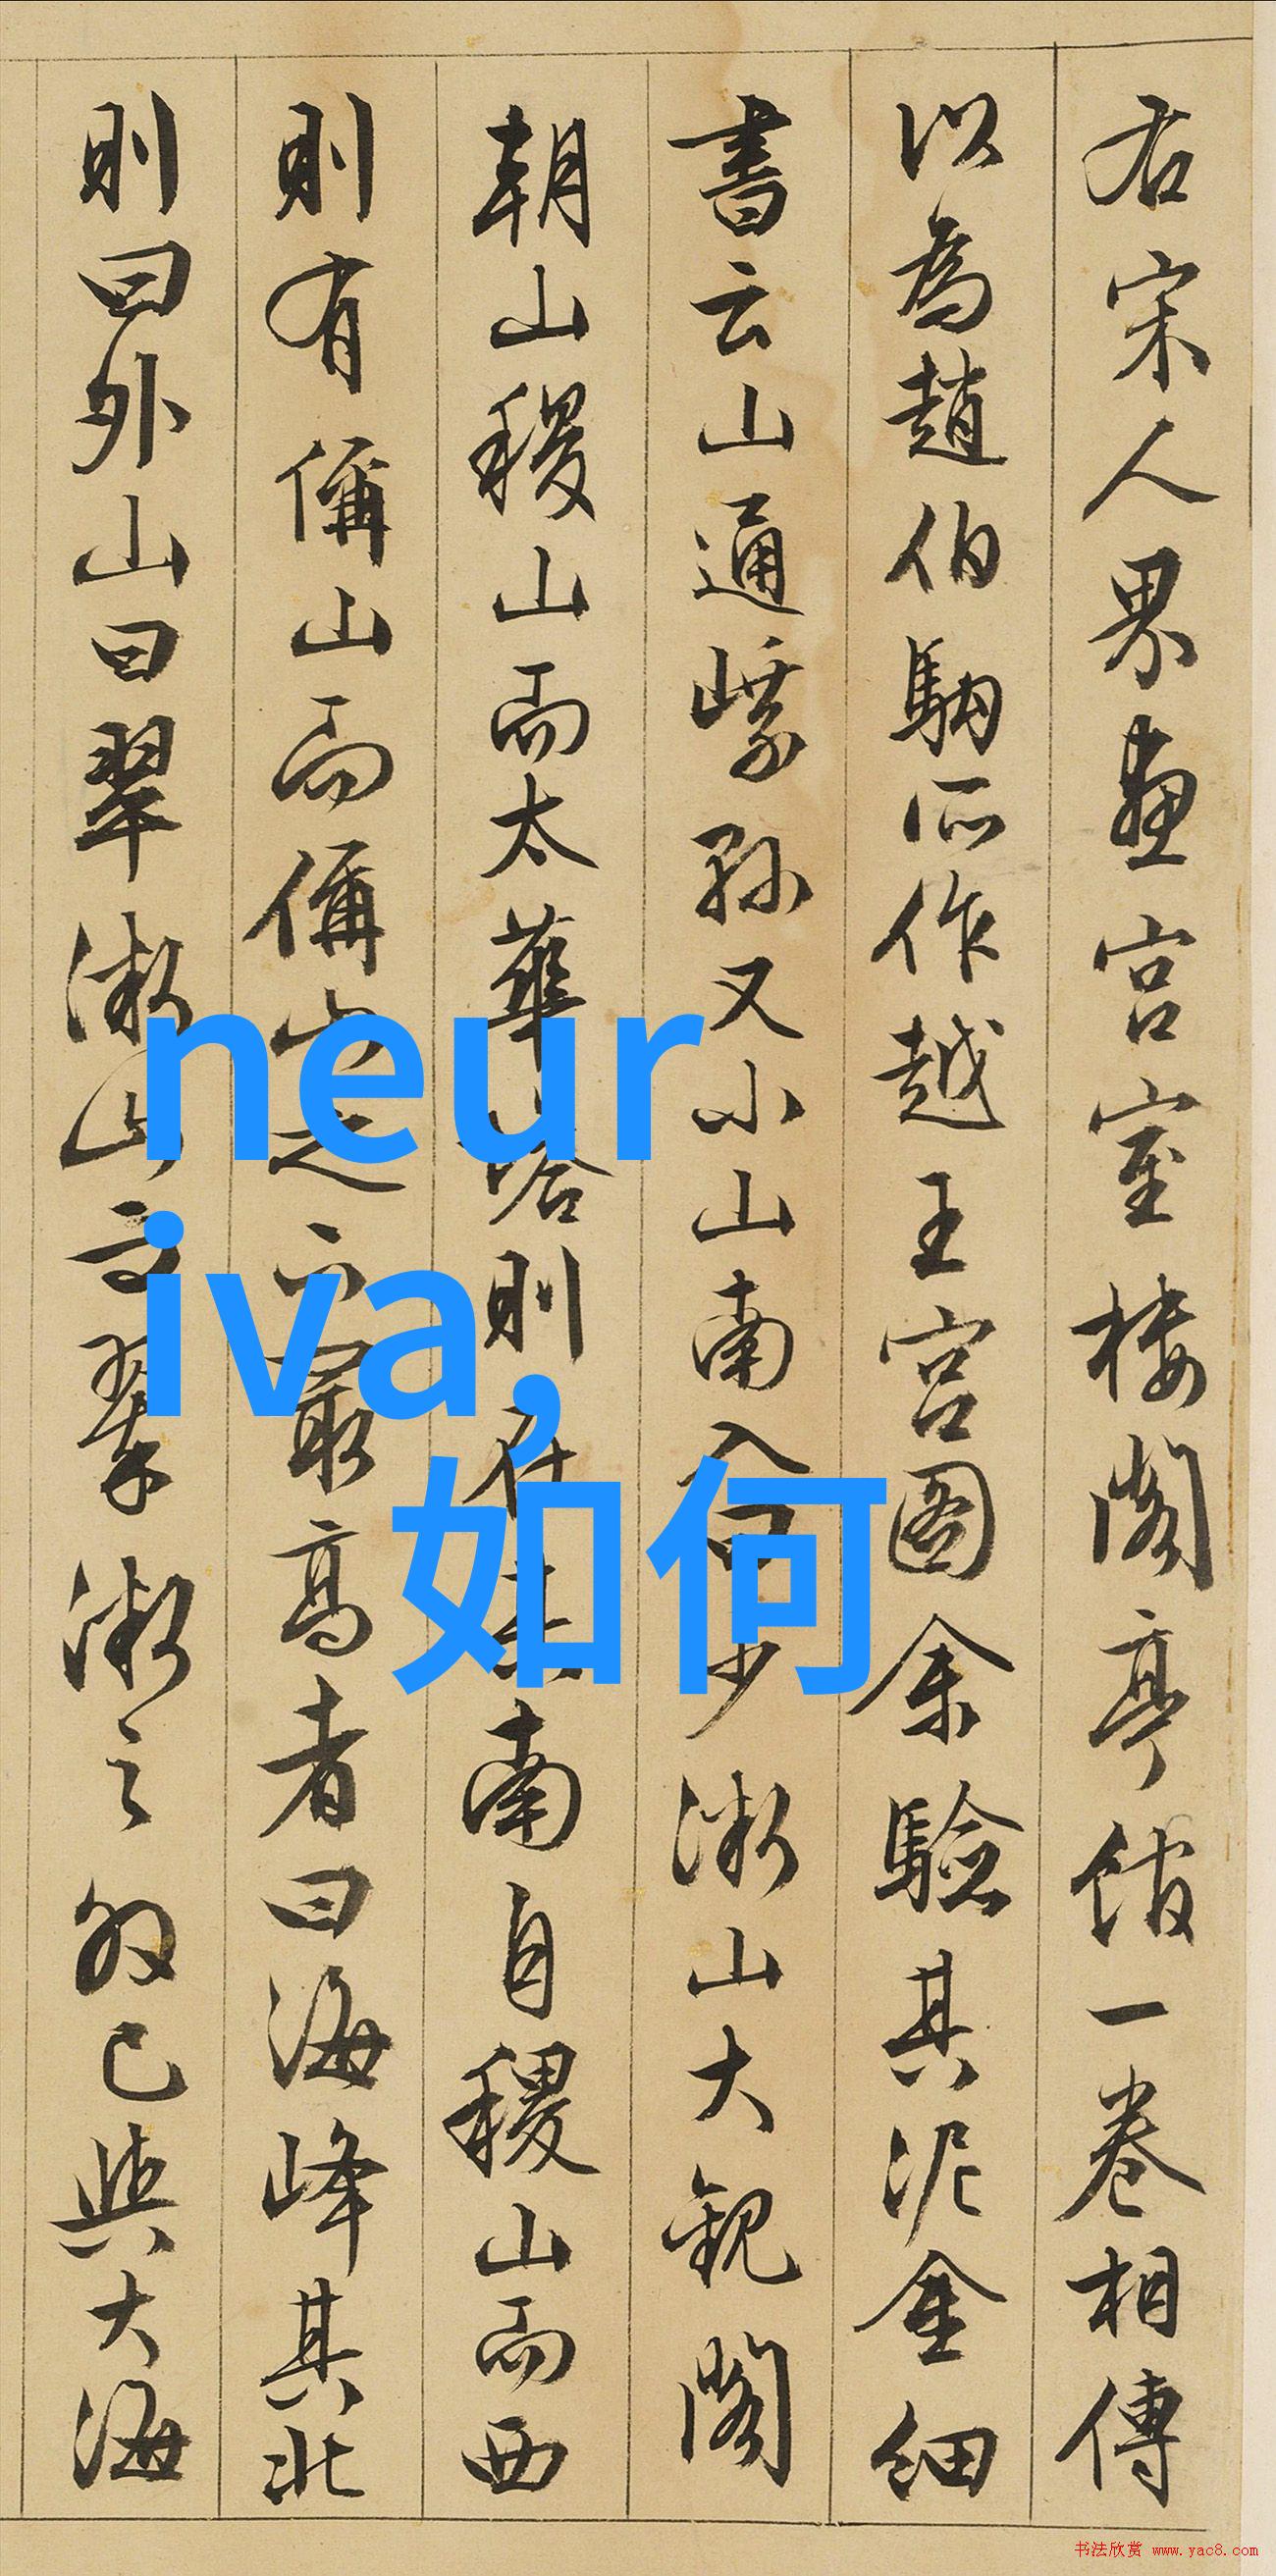 右宋人界畫宮室樓閣亭館一卷相傳
以為趙伯駒所作越王宮圖余驗其泥金細
書云山通
又小山南入
少微山大觀閣
朝山稷山而太華
則在
南自稷山而西
則有偁山而偁山之
最高者曰海峰其北
則曰外山曰翠微山
翠微之
已與大海
neur
iva,
如何
书法欣赏 www.yac8.com